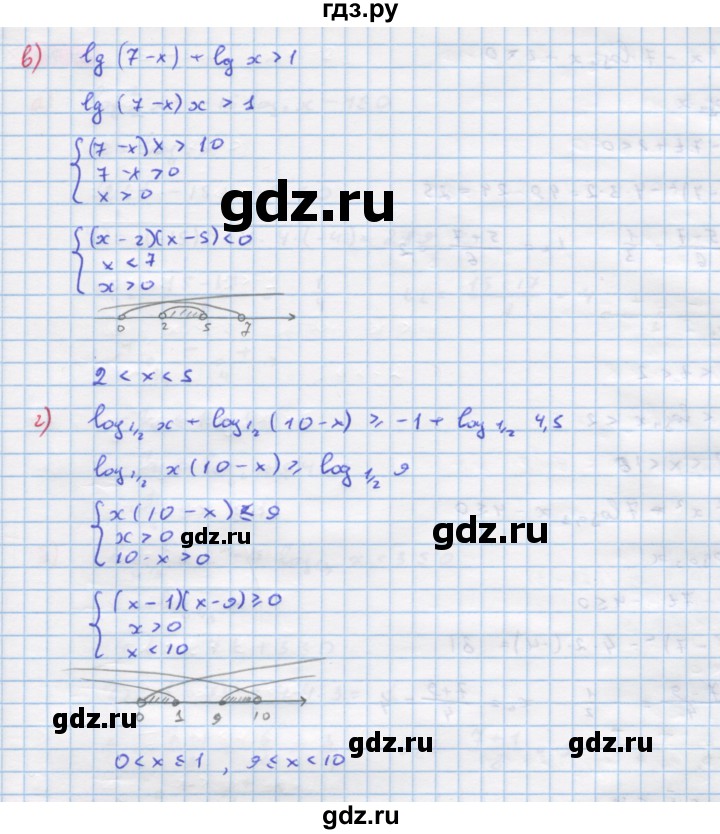 гдз.ру
в) lg (7-x) + lg x > 1
lg (7-x) x > 1
{ (7-x) x > 10
7-x > 0
x > 0
gdz.ru
{ (x-2)(x-5) < 0
x < 7
x > 0
0 2 5 7
2 < x < 5
г) log 1/2 x + log 1/2 (10-x) ≥ -1 + log 1/2 4,5
log 1/2 x (10-x) ≥ log 1/2 9
{ x (10-x) ≤ 9
x > 0
10-x > 0
gdz.ru
gdz.ru
{ (x-1)(x-9) ≥ 0
x > 0
x < 10
0 1 9 10
gdz.ru
gdz.ru
0 < x ≤ 1 , 9 ≤ x < 10
gdz.ru
gdz.ru